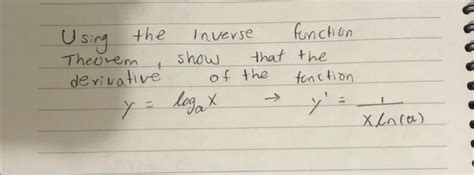 Using the Inverse function
Theorem, show that the
derivative of the function
y = logₐx → y' = 1/(x ln(a))